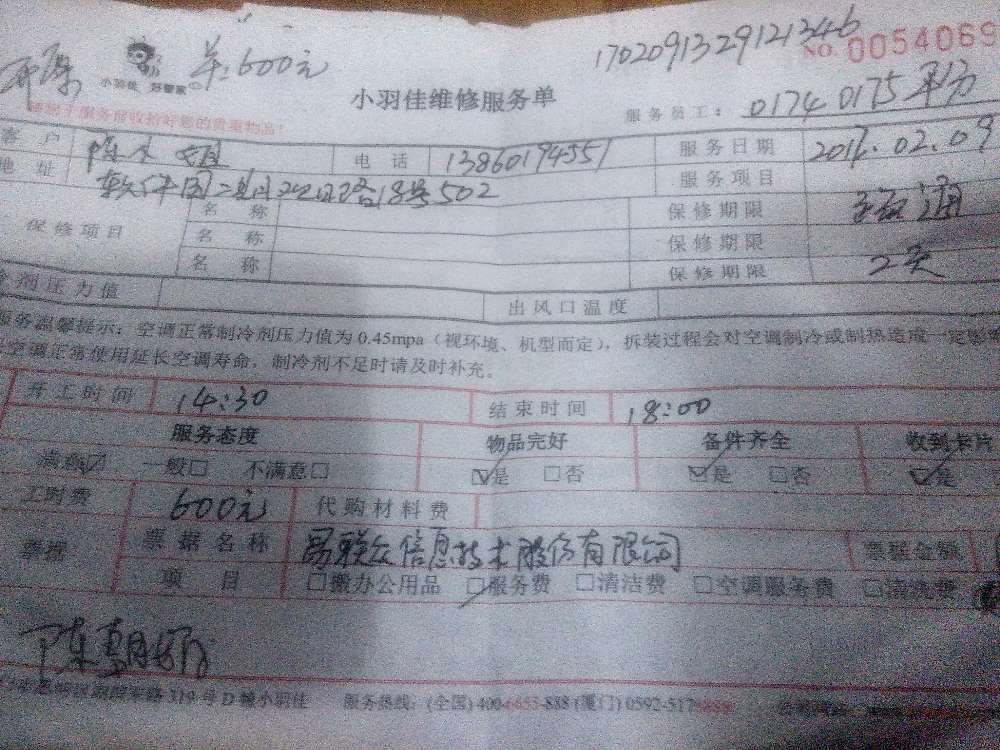 单:600元
1702091329121346
小羽佳 好管家
NO. 0054069
小羽佳维修服务单
服务员工: 0174 0175 平均
客户 陈小姐 电话 13860194551 服务日期 2017.02.09
地址 软件园二期观日路18号502 服务项目
保修项目 名称 保修期限
名称 保修期限
名称 保修期限 2天
剂压力值 出风口温度
服务温馨提示:空调正常制冷剂压力值为0.45mpa(视环境、机型而定),拆装过程会对空调制冷或制热造成一定影
空调正常使用延长空调寿命,制冷剂不足时请及时补充。
开工时间 14:30 结束时间 18:00
服务态度 物品完好 备件齐全 收到卡片
满意☑ 一般□ 不满意□ ☑是 □否 ☑是 □否 ☑是
工时费 600元 代购材料费
票据 票据名称 易联众信息技术股份有限公司 票据金额
项目 □搬办公用品 ☑服务费 □清洁费 □空调服务费 □清洗费
路319号D幢小羽佳 服务热线:(全国)400-6655-888 (厦门)0592-517